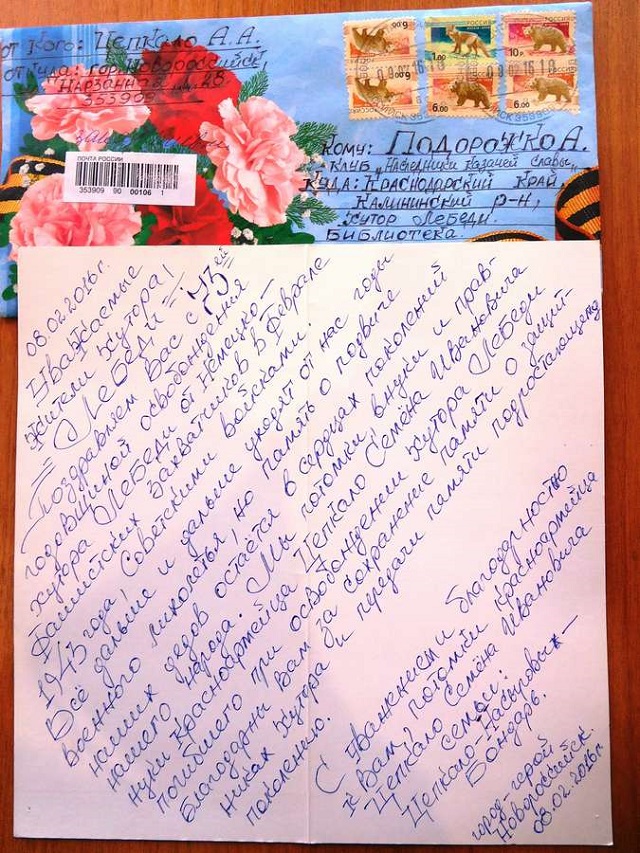 от кого: Цепкало А.А.
откуда: гор. Новороссийск,
353909
ПОЧТА РОССИИ
353909 90 00106 1
РОССИЯ
6.00
1.00
10 р
6.00
6.00
6.00
Кому: Подорожко А.
Клуб "Наследники казачей славы",
Куда: Краснодарский край
Калининский р-н,
хутор Лебеди.
Библиотека.
08.02.2016г.
Уважаемые
жители хутора!
= Лебеди =
Поздравляем Вас с 73-ей
годовщиной освобождения
хутора Лебеди от Немецко-
Фашистских захватчиков в Феврале
1943 года! Советскими войсками.
Всё дальше и дальше уходят от нас годы
военного лихолетья, но память о подвиге
наших дедов остаётся в сердцах поколений
нашего народа. Мы потомки внуки и прав-
нуки красноармейца Цепкало Семёна Ивановича
погибшего при освобождении хутора Лебеди
благодарны вам за сохранение памяти о защит-
никах хутора и передачи памяти подростающему
поколению.
С Уважением и благодарностю
к Вам, потомки красноармейца
Цепкало Семёна Ивановича
семьи:
Цепкало-Насуровых-
Бондарь.
город-герой
Новороссийск.
08.02.2016г